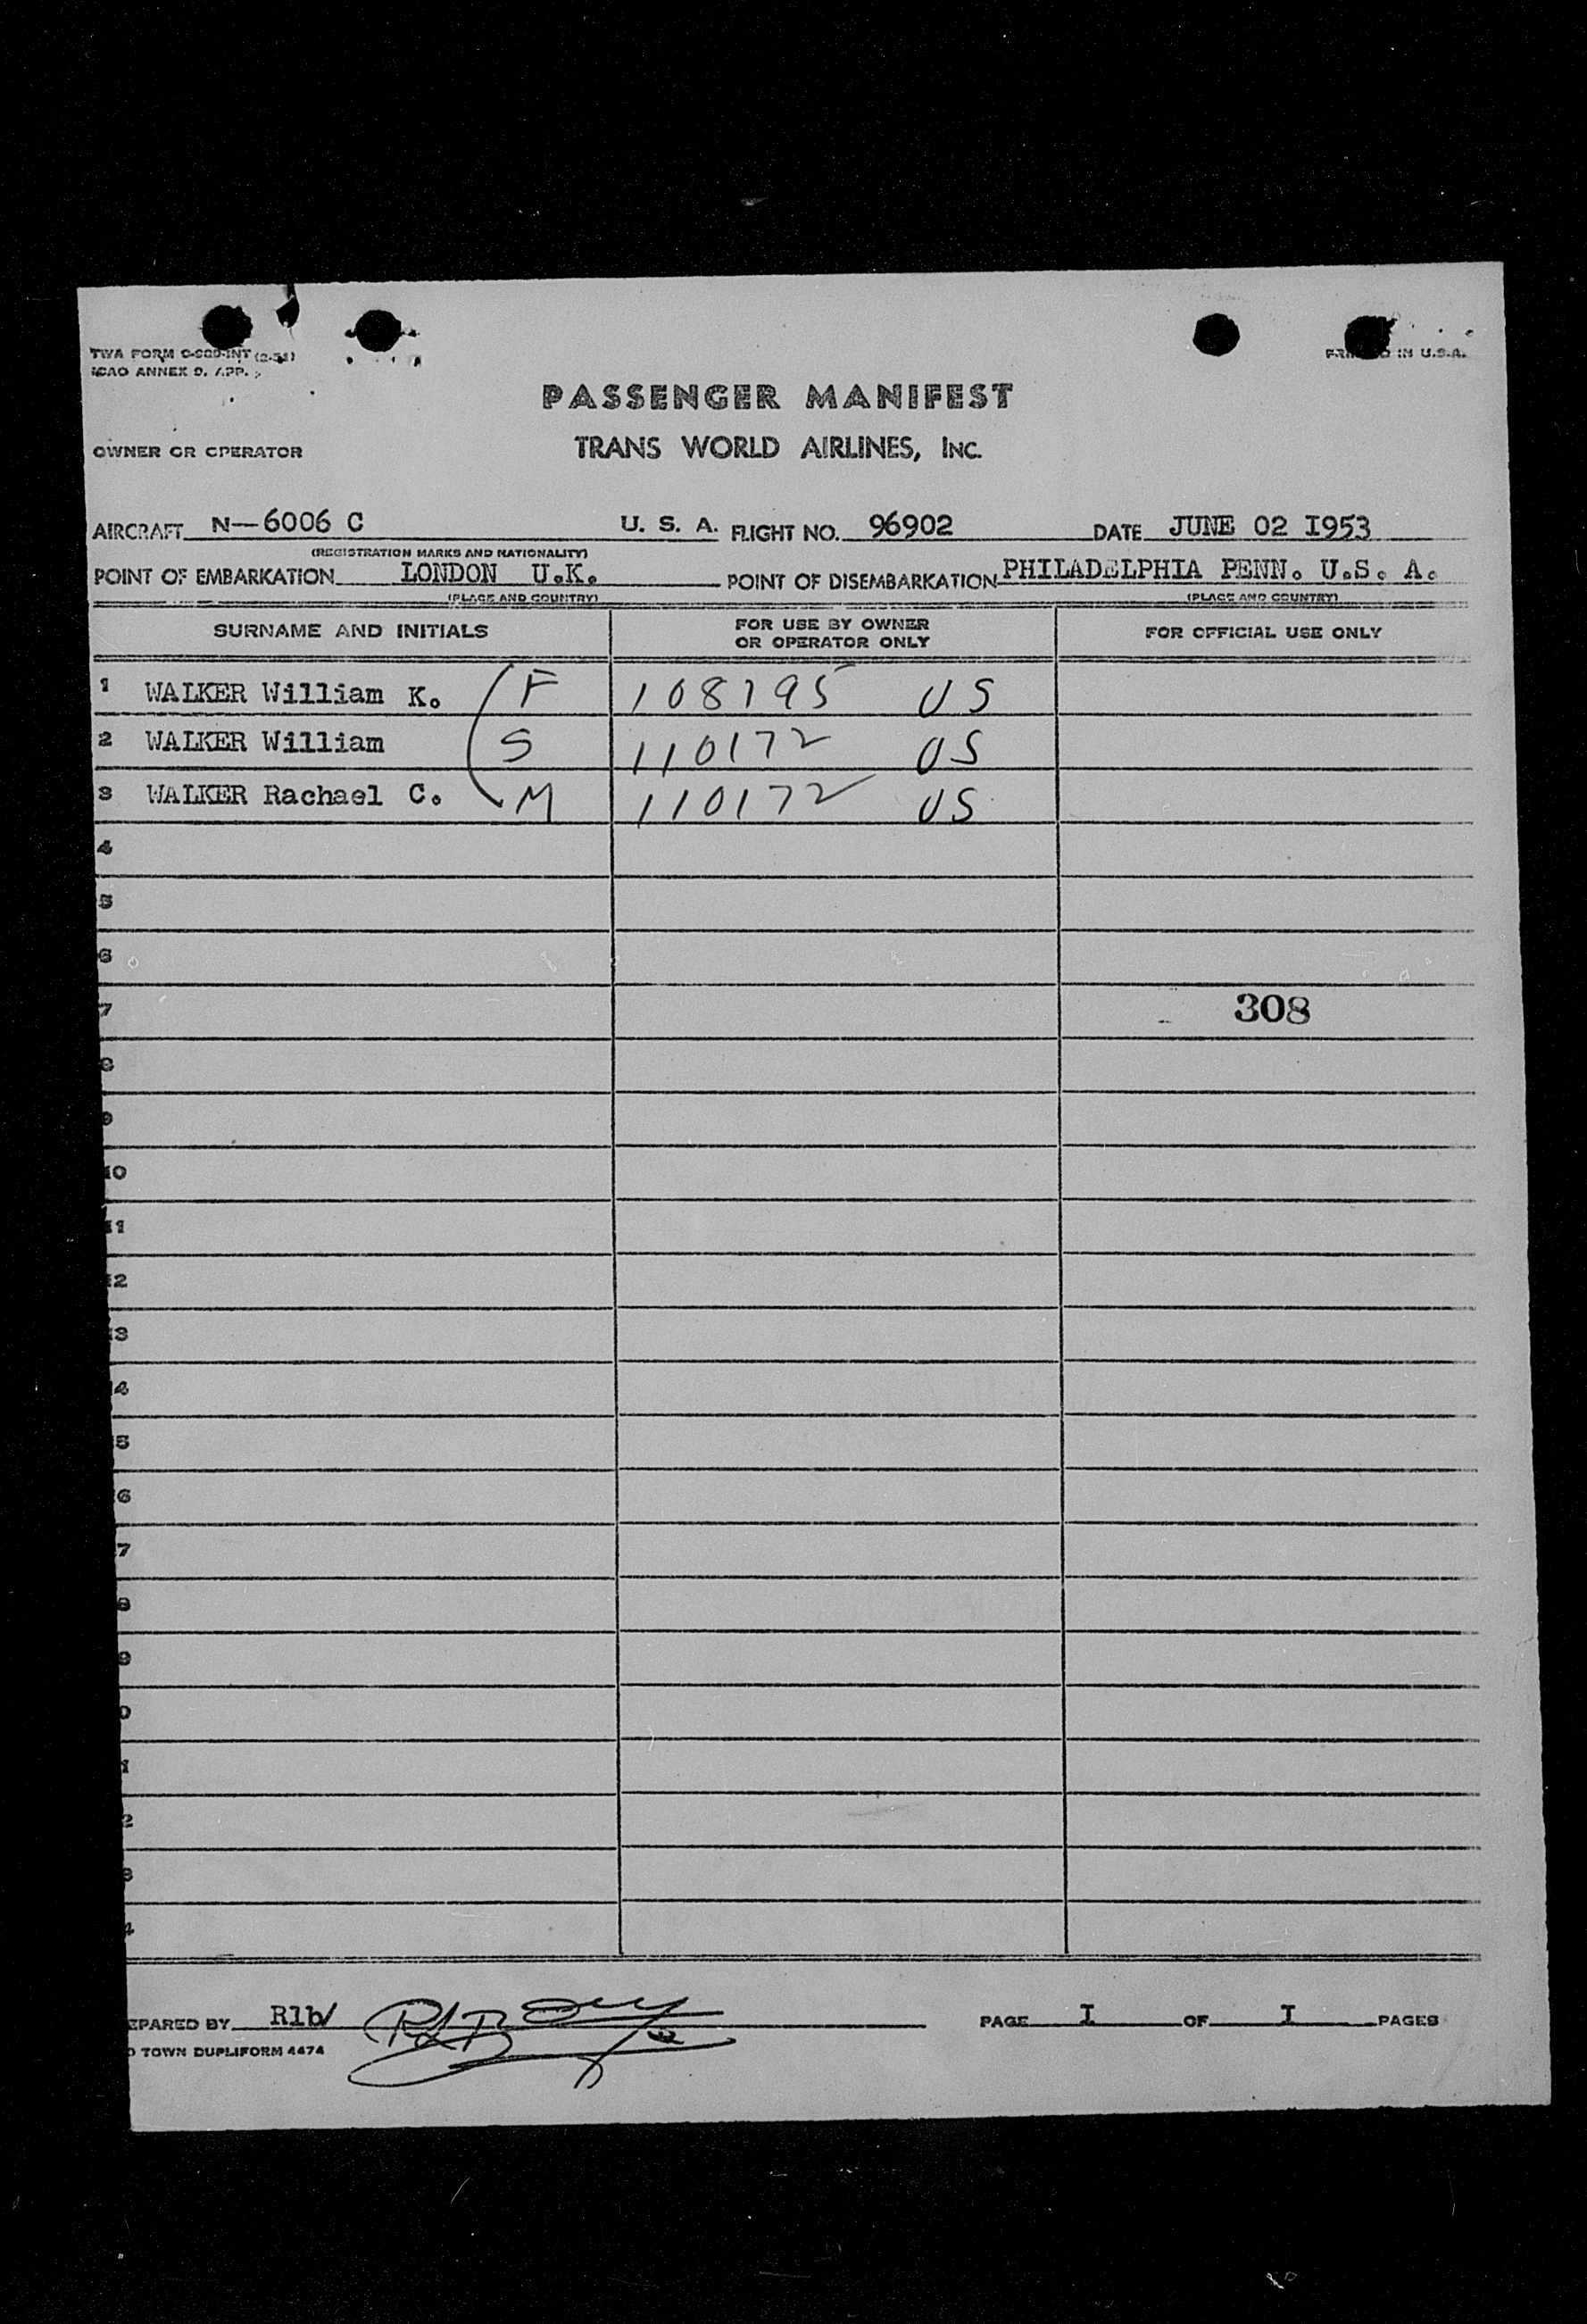 TWA FORM
ICAO ANNEX 9, APP.
IN U.S.A.
PASSENGER MANIFEST
OWNER OR OPERATOR
TRANS WORLD AIRLINES, INC.
AIRCRAFT N—6006 C U. S. A. FLIGHT NO. 96902 DATE JUNE 02 I953
(REGISTRATION MARKS AND NATIONALITY)
POINT OF EMBARKATION LONDON U.K. POINT OF DISEMBARKATION PHILADELPHIA PENN. U.S. A.
(PLACE AND COUNTRY) (PLACE AND COUNTRY)
SURNAME AND INITIALS FOR USE BY OWNER OR OPERATOR ONLY FOR OFFICIAL USE ONLY
1 WALKER William K. F 108795 US
2 WALKER William S 110172 US
3 WALKER Rachael C. M 110172 US
4
5
6
7 308
8
9
10
11
12
13
14
15
16
17
8
9
0
1
2
3
4
EPARED BY Rlb/ PAGE I OF I PAGES
TOWN DUPLIFORM 4474